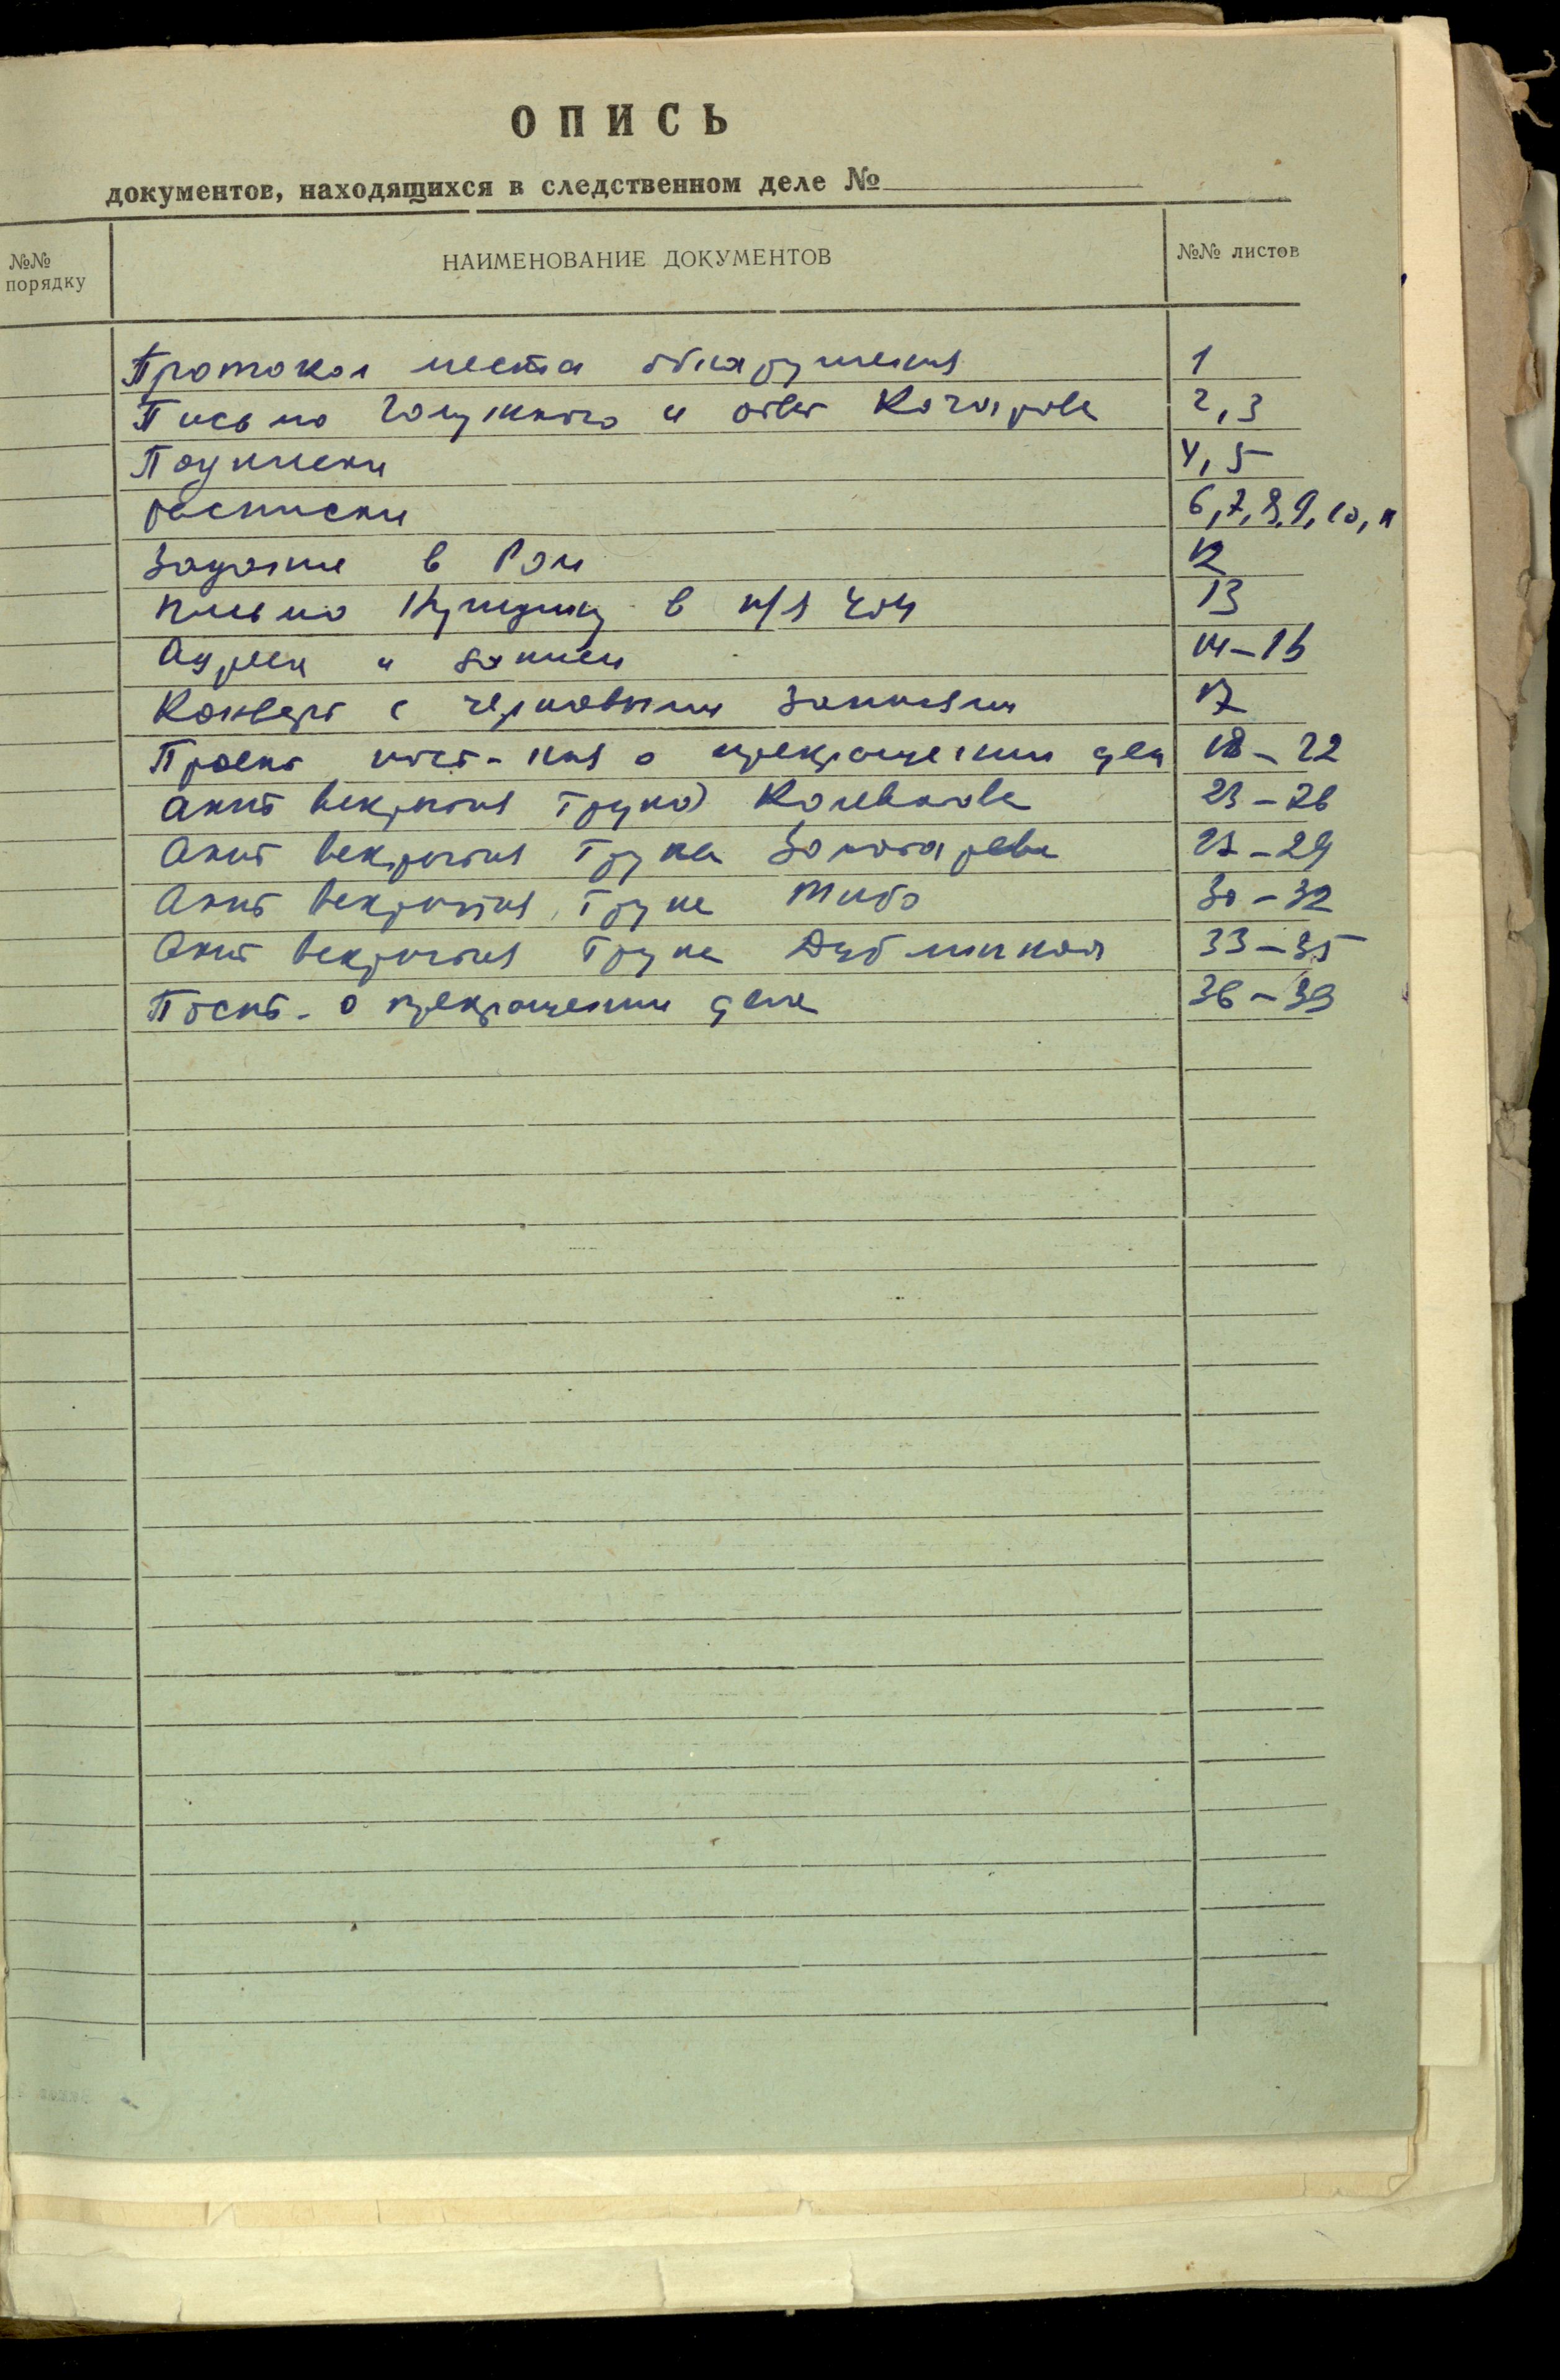 ОПИСЬ
документов, находящихся в следственном деле №
№№ порядку
НАИМЕНОВАНИЕ ДОКУМЕНТОВ
№№ листов
Протокол места обнаружения 1
Письмо и ответ 2, 3
Подписки 4, 5
расписки 6, 7, 8, 9, 10, 11
Задание в Ром 12
письмо в п/я 404 13
Адреса и записи 14-16
Конверт с черновыми записями 17
Проект пост-ния о прекращении дела 18-22
Акт вскрытия трупа Колеватова 23-26
Акт вскрытия трупа Золотарева 27-29
Акт вскрытия трупа Тибо 30-32
Акт вскрытия трупа Дубининой 33-35
Пост. о прекращении дела 36-39